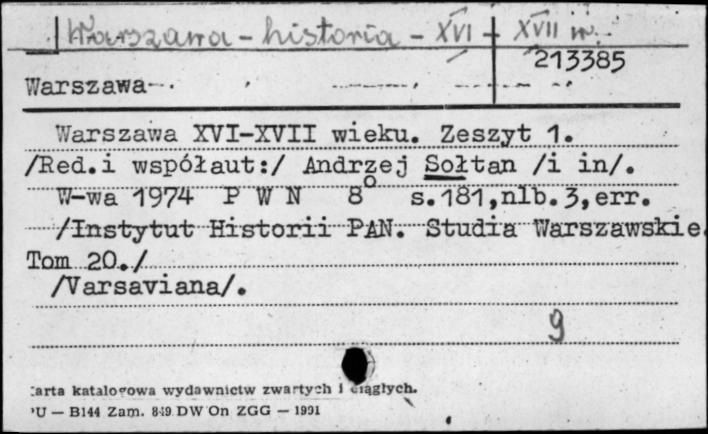 Warszawa - historia - XVI - XVII w.
213385
Warszawa
Warszawa XVI-XVII wieku. Zeszyt 1.
/Red.i współaut:/ Andrzej Sołtan /i in/.
W-wa 1974 P W N 8° s.181,nlb.3,err.
/Instytut Historii PAN. Studia Warszawskie.
Tom 20./
/Varsaviana/.
9
arta katalogowa wydawnictw zwartych i ciągłych.
U — B144 Zam. 849 DW On ZGG — 1991